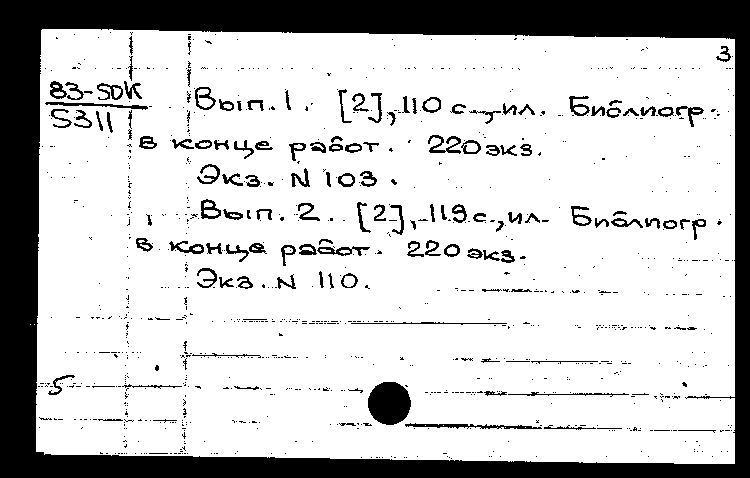 3
83-SDK Вып. 1. [2], 110 с., ил. Библиогр.
5311
в конце работ. 220 экз.
Экз. N 103.
Вып. 2. [2], 119 с., ил. Библиогр.
в конце работ. 220 экз.
Экз. N 110.
5